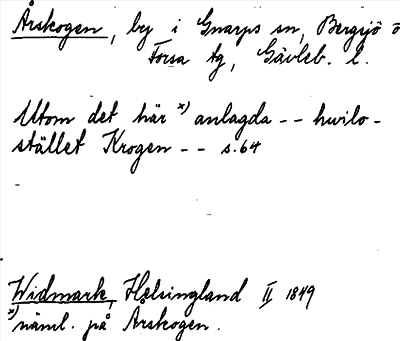 Årskogen, by i Gnarps sn, Bergsjö o
Forsa tg, Gävleb. l.
Utom det här x) anlagda -- hvilo-
stället Krogen -- s. 64
Widmark, Helsingland II 1849
x) näml. på Arskogen.